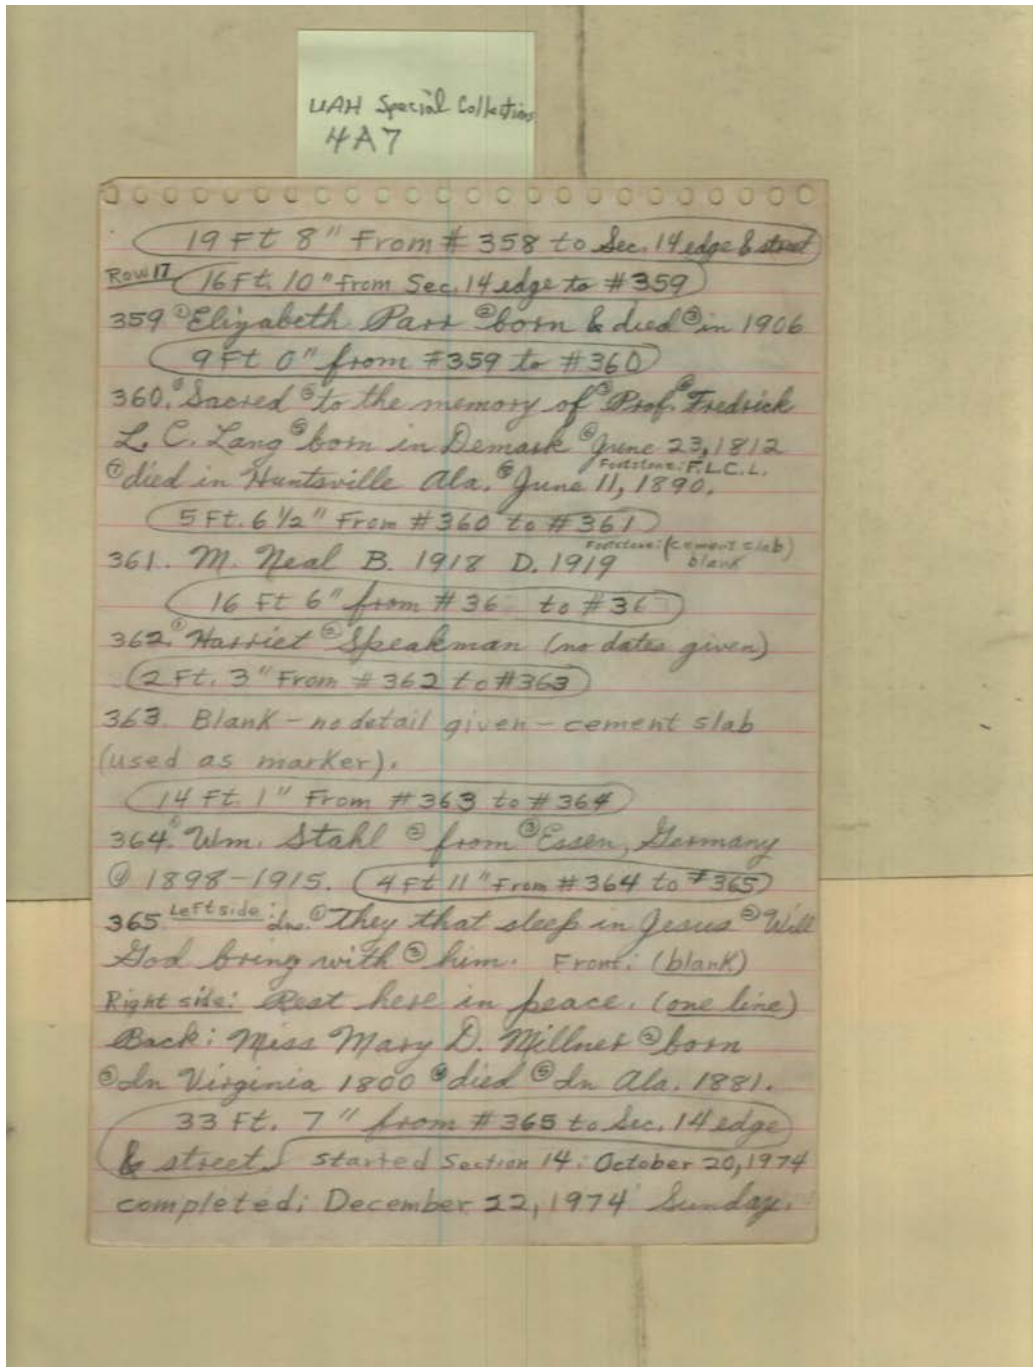 UAH Special Collections
4A7
19 Ft 8" From # 358 to Sec. 14 edge & street
Row 17 16 Ft. 10" from Sec. 14 edge to #359
359 ①Elizabeth Parr ②born & died ③in 1906
9 Ft 0" from #359 to #360
360. ①Sacred ②to the memory of ③Prof. ④Fredrick
L. C. Lang ⑤born in Demark ⑥June 23, 1812
Footstone: F.L.C.L.
⑦died in Huntsville Ala. ⑧June 11, 1890.
5 Ft. 6 1/2" From #360 to #361
Footstone: (cement slab)
361. M. Neal B. 1918 D. 1919 blank
16 Ft 6" from #36 to #36
362. ①Harriet ②Speakman (no dates given)
2 Ft. 3" From #362 to #363
363. Blank - no detail given - cement slab
(used as marker).
14 Ft. 1" From #363 to #364
364. ①Wm. Stahl ② from ③Essen, Germany
④ 1898-1915. 4 Ft 11" From #364 to #365
365 Left side: In. ① They that sleep in Jesus ② Will
God bring with ③ him. Front: (blank)
Right side: Rest here in peace. (one line)
Back: Miss Mary D. Millner ② born
③ In Virginia 1800 ④ died ⑤ In Ala. 1881.
33 Ft. 7" from #365 to Sec. 14 edge
& street started Section 14: October 20, 1974
completed: December 22, 1974 Sunday.